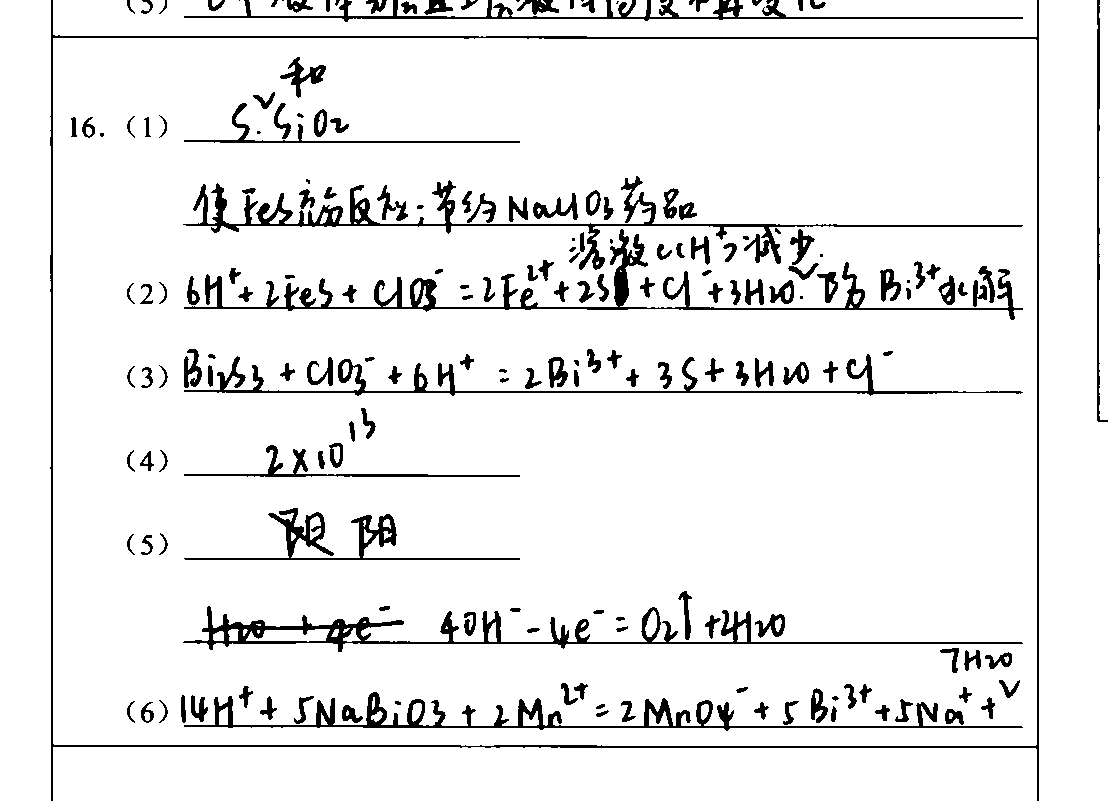 16. (1) S和SiO2
使FeS充分反应；节约NaClO3药品
(2) 6H⁺+2FeS+ClO3⁻=2Fe²⁺+2S+Cl⁻+3H2O. 溶液c(H⁺)减少. 防 Bi³⁺水解
(3) Bi2S3+ClO3⁻+6H⁺=2Bi³⁺+3S+3H2O+Cl⁻
(4) 2×10¹³
(5) 阳
4OH⁻-4e⁻=O2↑+2H2O
(6) 14H⁺+5NaBiO3+2Mn²⁺=2MnO4⁻+5Bi³⁺+5Na⁺+7H2O